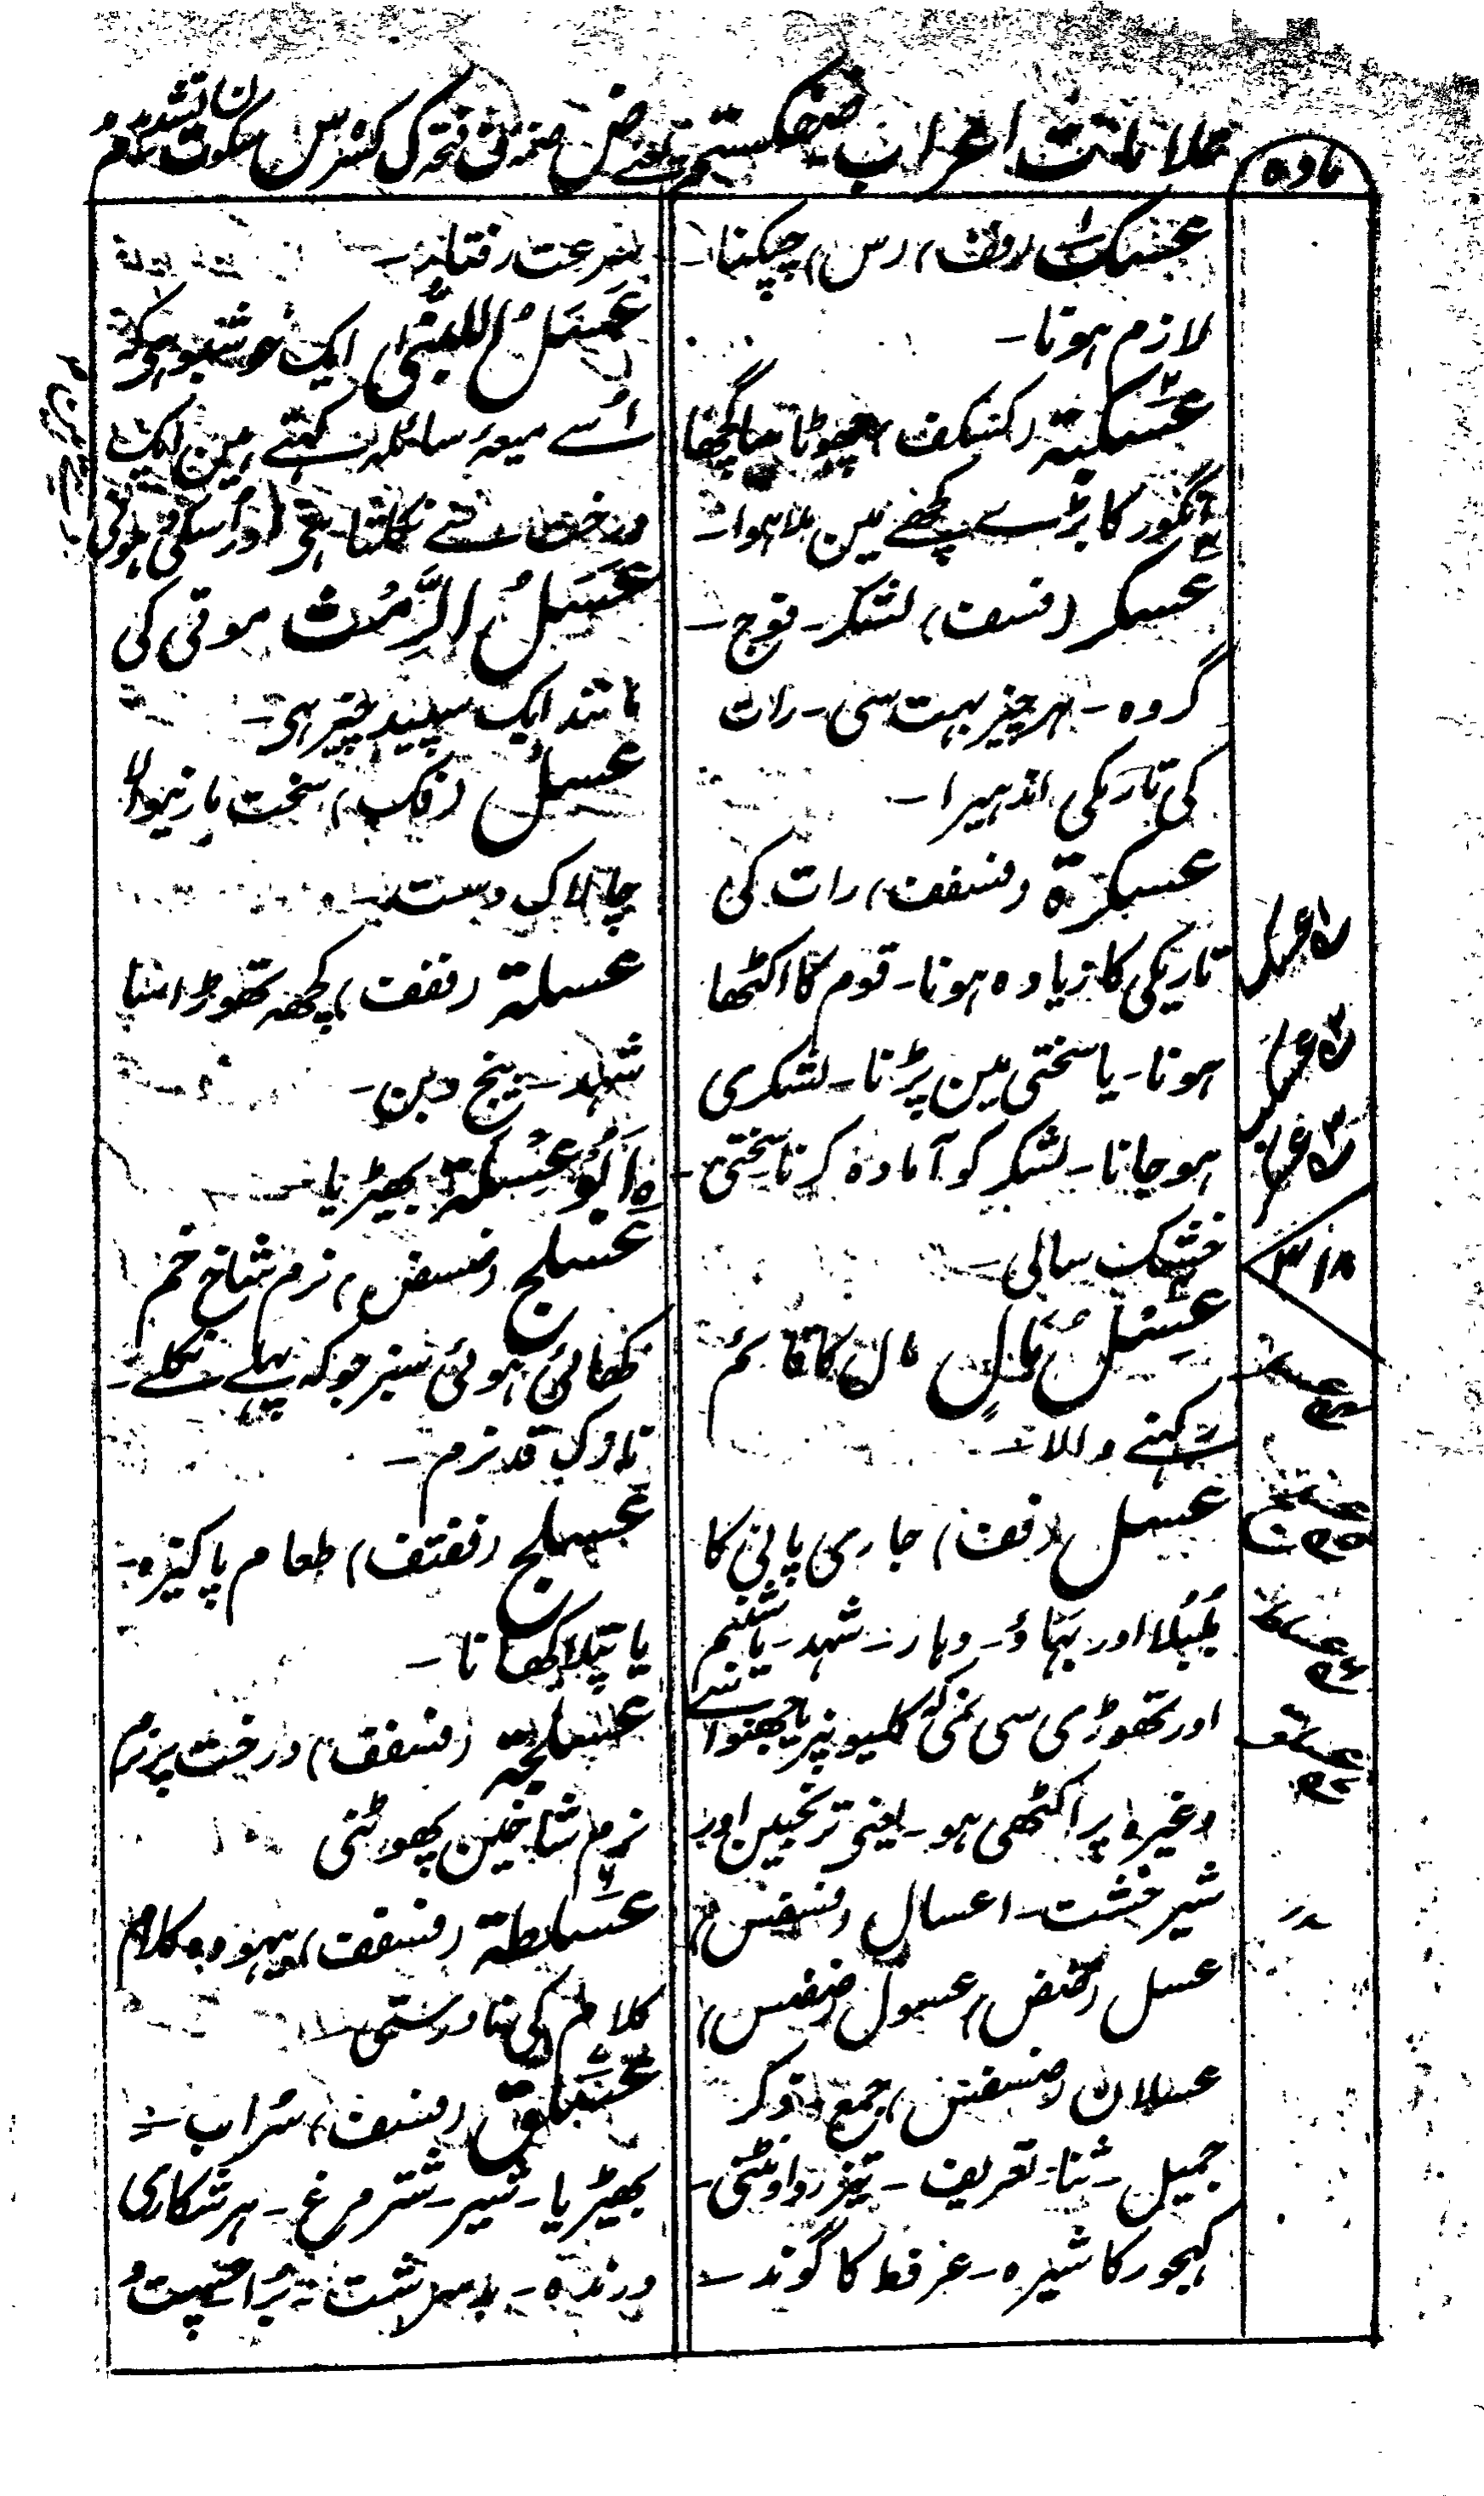 مادہ
علامات اعراب ض ضمہ ف فتحہ ک کسرہ س سکون
عسک (وف، رس) چپکنا۔
لازم ہونا۔
عسکبۃ (کسکف) چھوٹا سا گچھا
انگور کا بڑے گچھے مین ملا ہوا۔
عسکر (فسف) لشکر۔ فوج۔
گروہ۔ ہر چیز بہت سی۔ رات
کی تاریکی اندہیرا۔
عسکرۃ (فسفف) رات کی
تاریکی کا زیادہ ہونا۔ قوم کا اکٹھا
ہونا۔ یا سختی مین پڑنا۔ لشکری
ہو جانا۔ لشکر کو آمادہ کرنا۔ سختی۔
خشک سالی۔
عِسْلُ مَالٍ مال کا قائم
رکہنے والا۔
عسل (فف) جاری پانی کا
بُلبُلا اور بہاؤ۔ دہار۔ شہد۔ یا شبنم
اور تھوڑی سی نمی کہ کلیونپر یا
وغیرہ پر اکٹھی ہو۔ یعنی ترنجبین اور
شیر خشت۔ اعسال (فسفس)
عسل (ضض) عسول (ضضس)
عسلان (ضسفس) جمع۔ ذکر
جمیل۔ ثنا۔ تعریف۔ تیز رو اونٹنی۔
کہجور کا شیرہ۔ عرفط کا گوند۔
سرعت رفتار۔
عَسَلُ اللُّبْنیٰ ایک خوشبو ہی کہ
اُسے میعۂ سائلہ کہتے ہین ایک
درخت سے نکلتا ہی اور اُسکی
عَسَلُ الرِّمْث موتی کی
مانند ایک سپید چیز ہی۔
عسل (فک) سخت مارنیوالا
چالاک دست۔
عسلۃ (ففف) کچھہ تھوڑا سا
شہد۔ بیخ و بن۔
اَبُوْ عِسْلَۃ بھیڑیا۔
عسلج (ضسض) نرم شاخ خم
کھائی ہوئی سبز جو کہ پہلے نکلے۔
نازک قد نرم۔
عسلج (ففتف) طعام پاکیزہ۔
یا پتلا کھانا۔
عسلجۃ (فسفف) درخت پر نرم
نرم شاخین پھوٹنی
عسلطۃ (فسفف) بیہودہ کلام
کلام کی نادرستی۔
عسلق (فسف) سُراب۔
بھیڑیا۔ شیر۔ شتر مرغ۔ ہر شکاری
درندہ۔ بد سرشت۔
۳۱۸